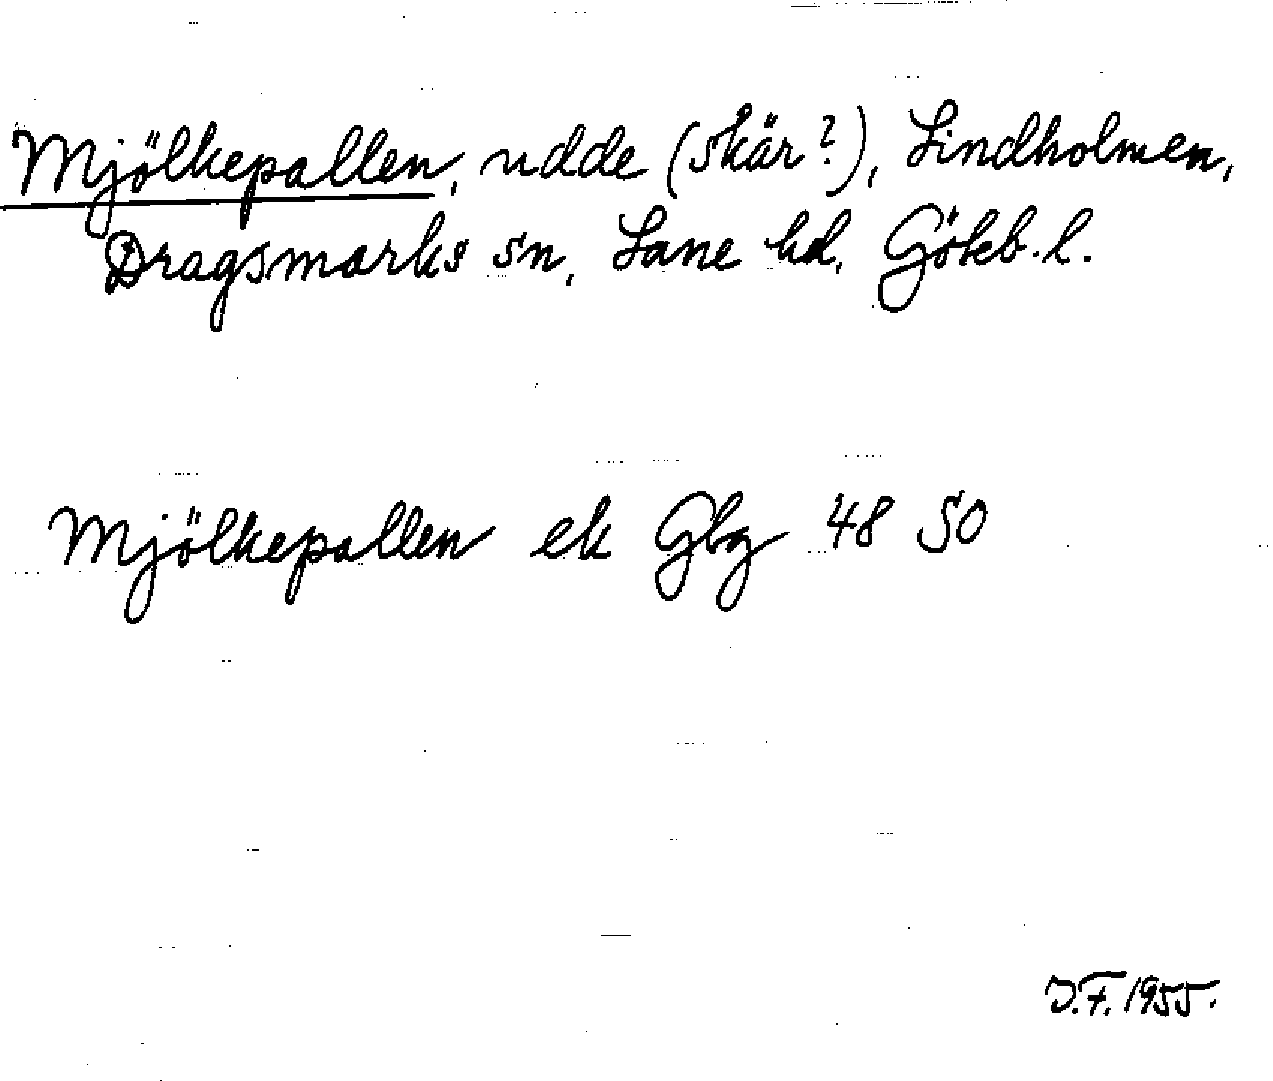 Mjölkepallen, udde (skär?), Lindholmen,
Dragsmarks sn, Lane hd, Göteb. l.
Mjölkepallen ek Gbg 48 SO
D.F. 1955.